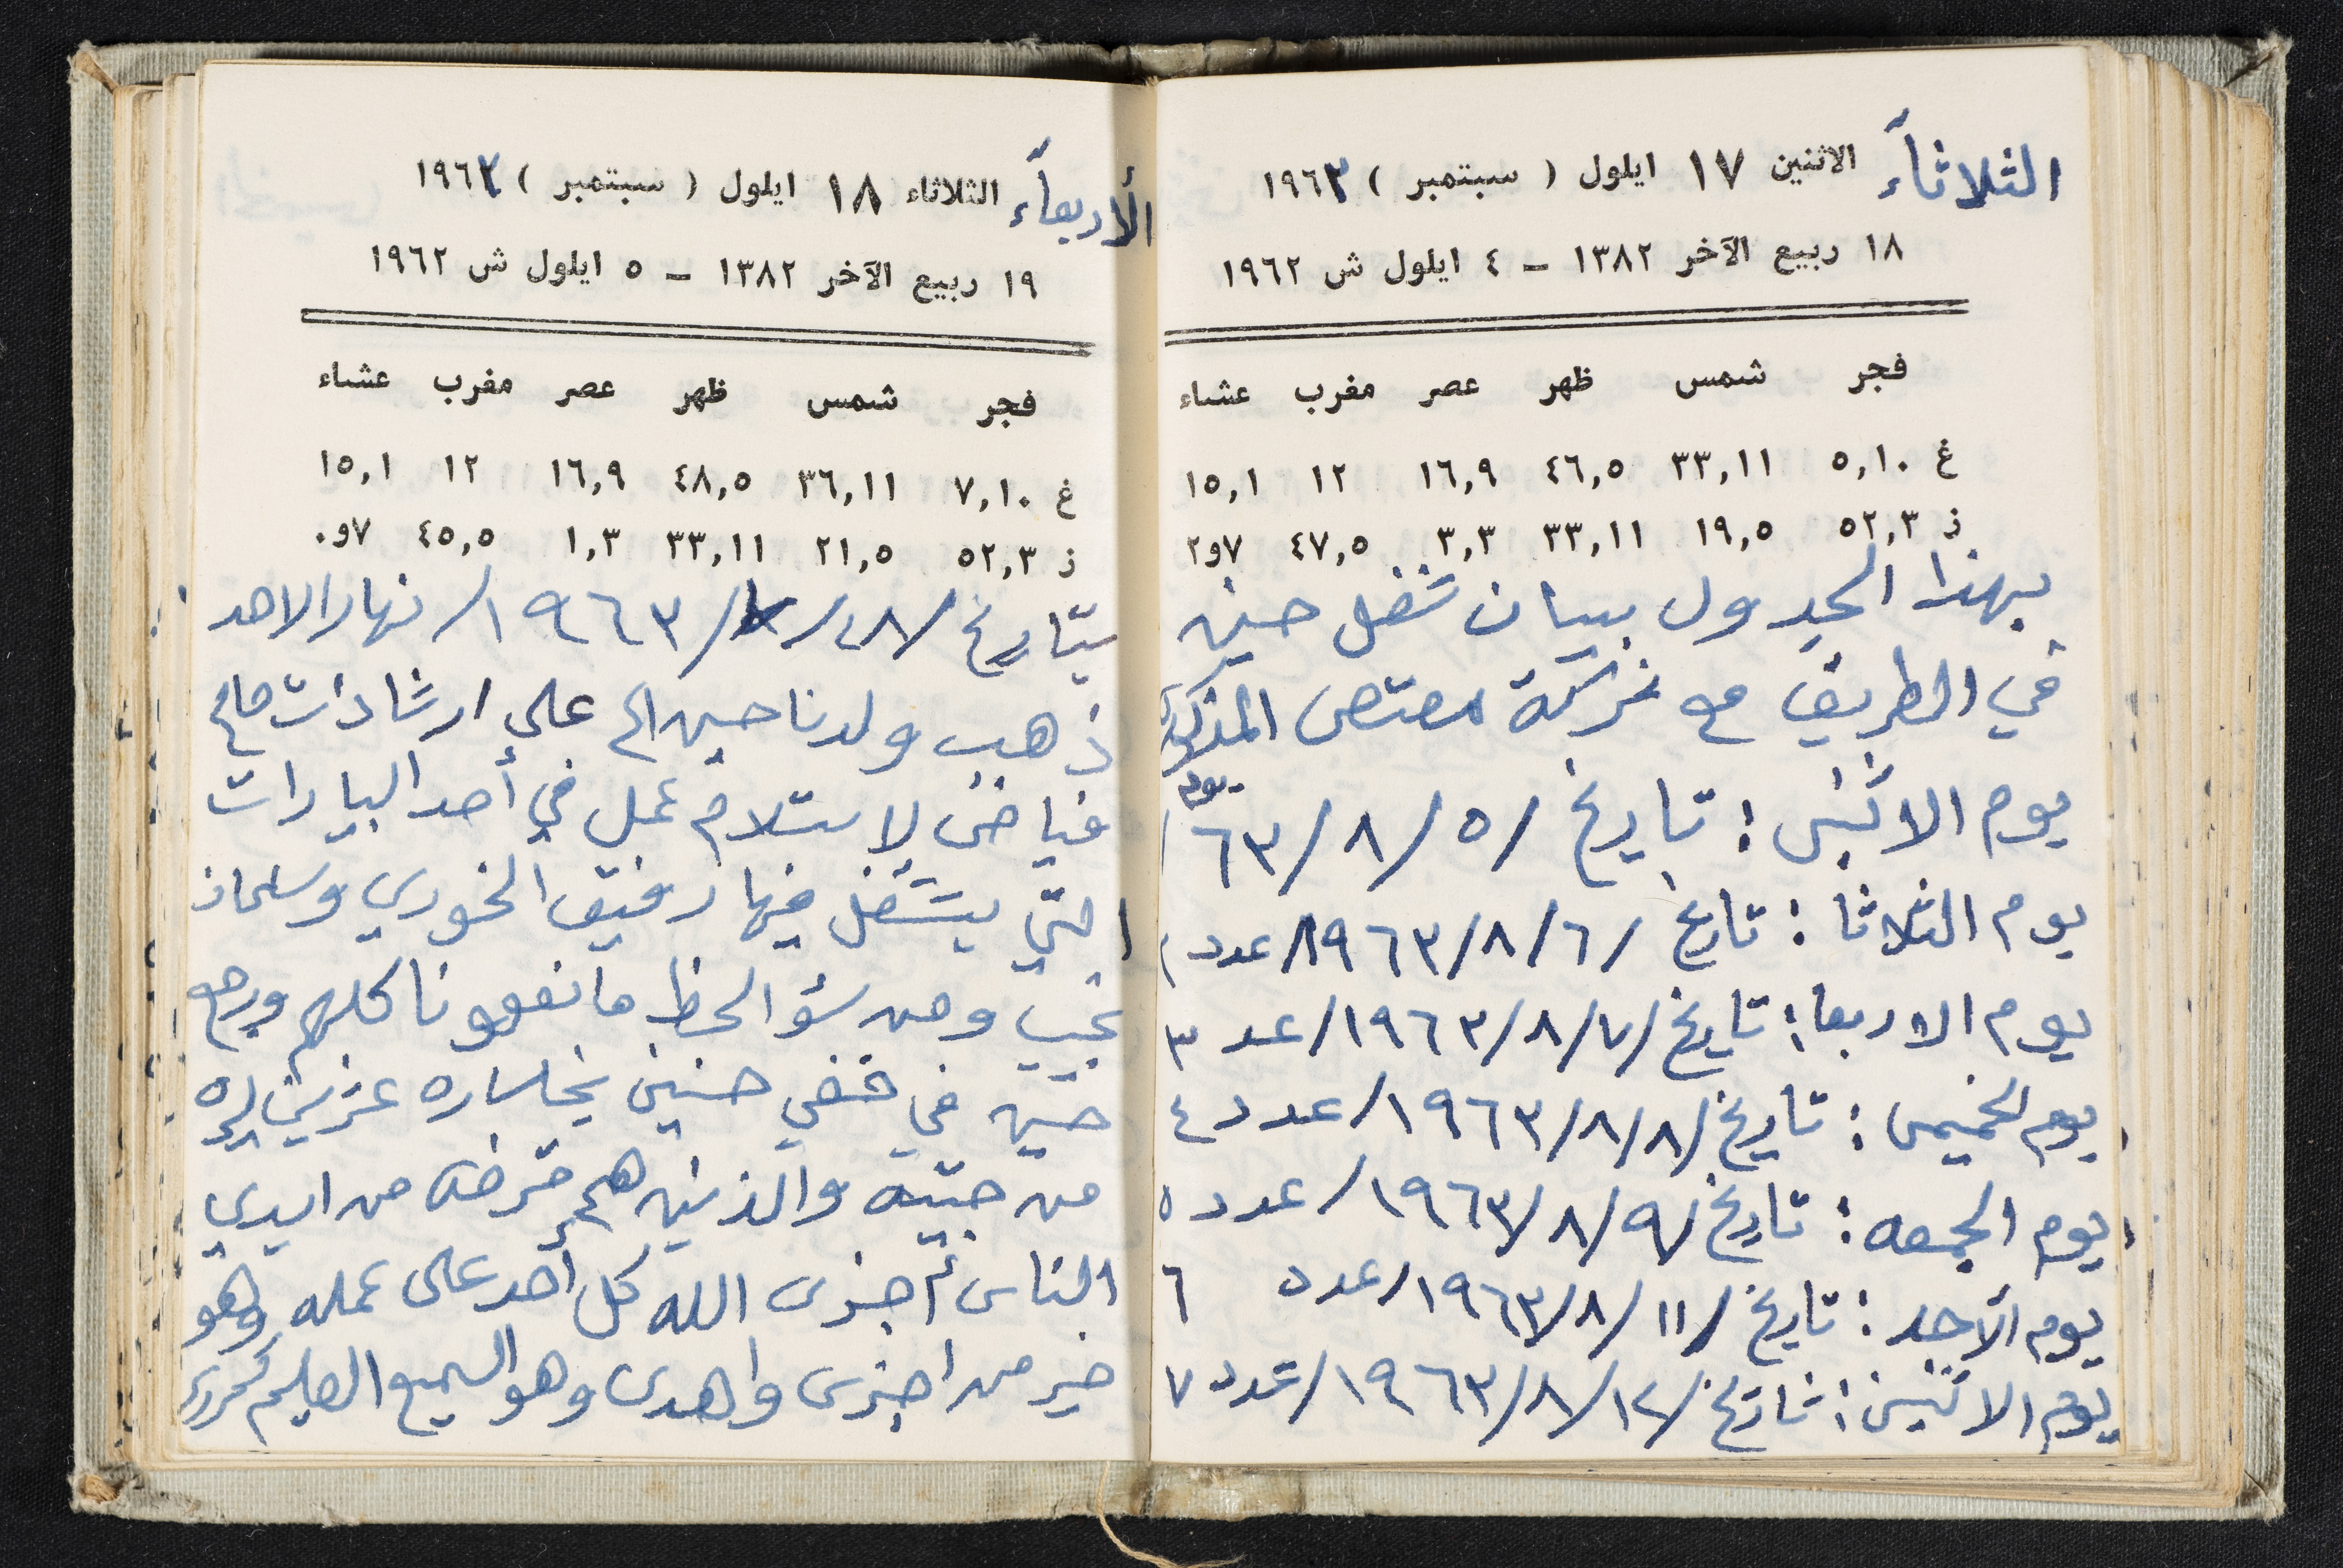 الثلاثآء الاثنين ١٧ ايلول ( سبتمبر ) ١٩٦٣
١٨ ربيع الآخر ١٣٨٢ – ٤ ايلول ش ١٩٦٢
فجر شمس ظهر عصر مغرب عشاء
غ ٥,١٠ ٣٣,١١ ٤٦,٥ ١٦,٩ ١٢ ١٥,١
ز ٥٢,٣ ١٩,٥ ٣٣,١١ ٣,٣ ٤٧,٥ ٢و٧
بهذا الجدول بيان شغل حنين
في الطريق مع شركة المذكوره
يوم الاثنين : تاريخ /٥/٨/٦٣ يوم ١
يوم الثلاثا : تاريخ /٦/٨/١٩٦٣/عدد ٢
يوم الاربعا : تاريخ /٧/٨/١٩٦٣/عدد ٣
يوم الخميس : تاريخ /٨/٨/١٩٦٣/عدد ٤
يوم الجمعه : تاريخ /٩/٨/١٩٦٣/عدد ٥
يوم الآحد : تاريخ /١١/٨/١٩٦٣/عدد ٦
يوم الاثنين : تاريخ /١٢/٨/١٩٦٣/عدد ٧
الأربعآء الثلاثاء ١٨ ايلول ( سبتمبر ) ١٩٦٣
١٩ ربيع الآخر ١٣٨٢ – ٥ ايلول ش ١٩٦٢
فجر شمس ظهر عصر مغرب عشاء
غ ٧,١٠ ٣٦,١١ ٤٨,٥ ١٦,٩ ١٢ ١٥,١
ز ٥٢,٣ ٢١,٥ ٣٣,١١ ١,٣ ٤٥,٥ ٠و٧
بتاريخ /٢٨/٧/١٩٦٣/ نهار الاحد
ذهب ولدنا حنين على ارشادات صالح
فياض لإستلام عمل في أحد البيارات
التي يشتغل فيها رفيق الخوري وسلمان
نجيب ومن سؤ الحظ ما نفعونا كلهم ورجع
حنين في خفي حنين بخساره عشرين ليره
من جيبه والذين هم قرضه من ايدي
الناس جزى الله كل أحد على عمله وهو
خير من اجزى واهدى وهو السميع العليم